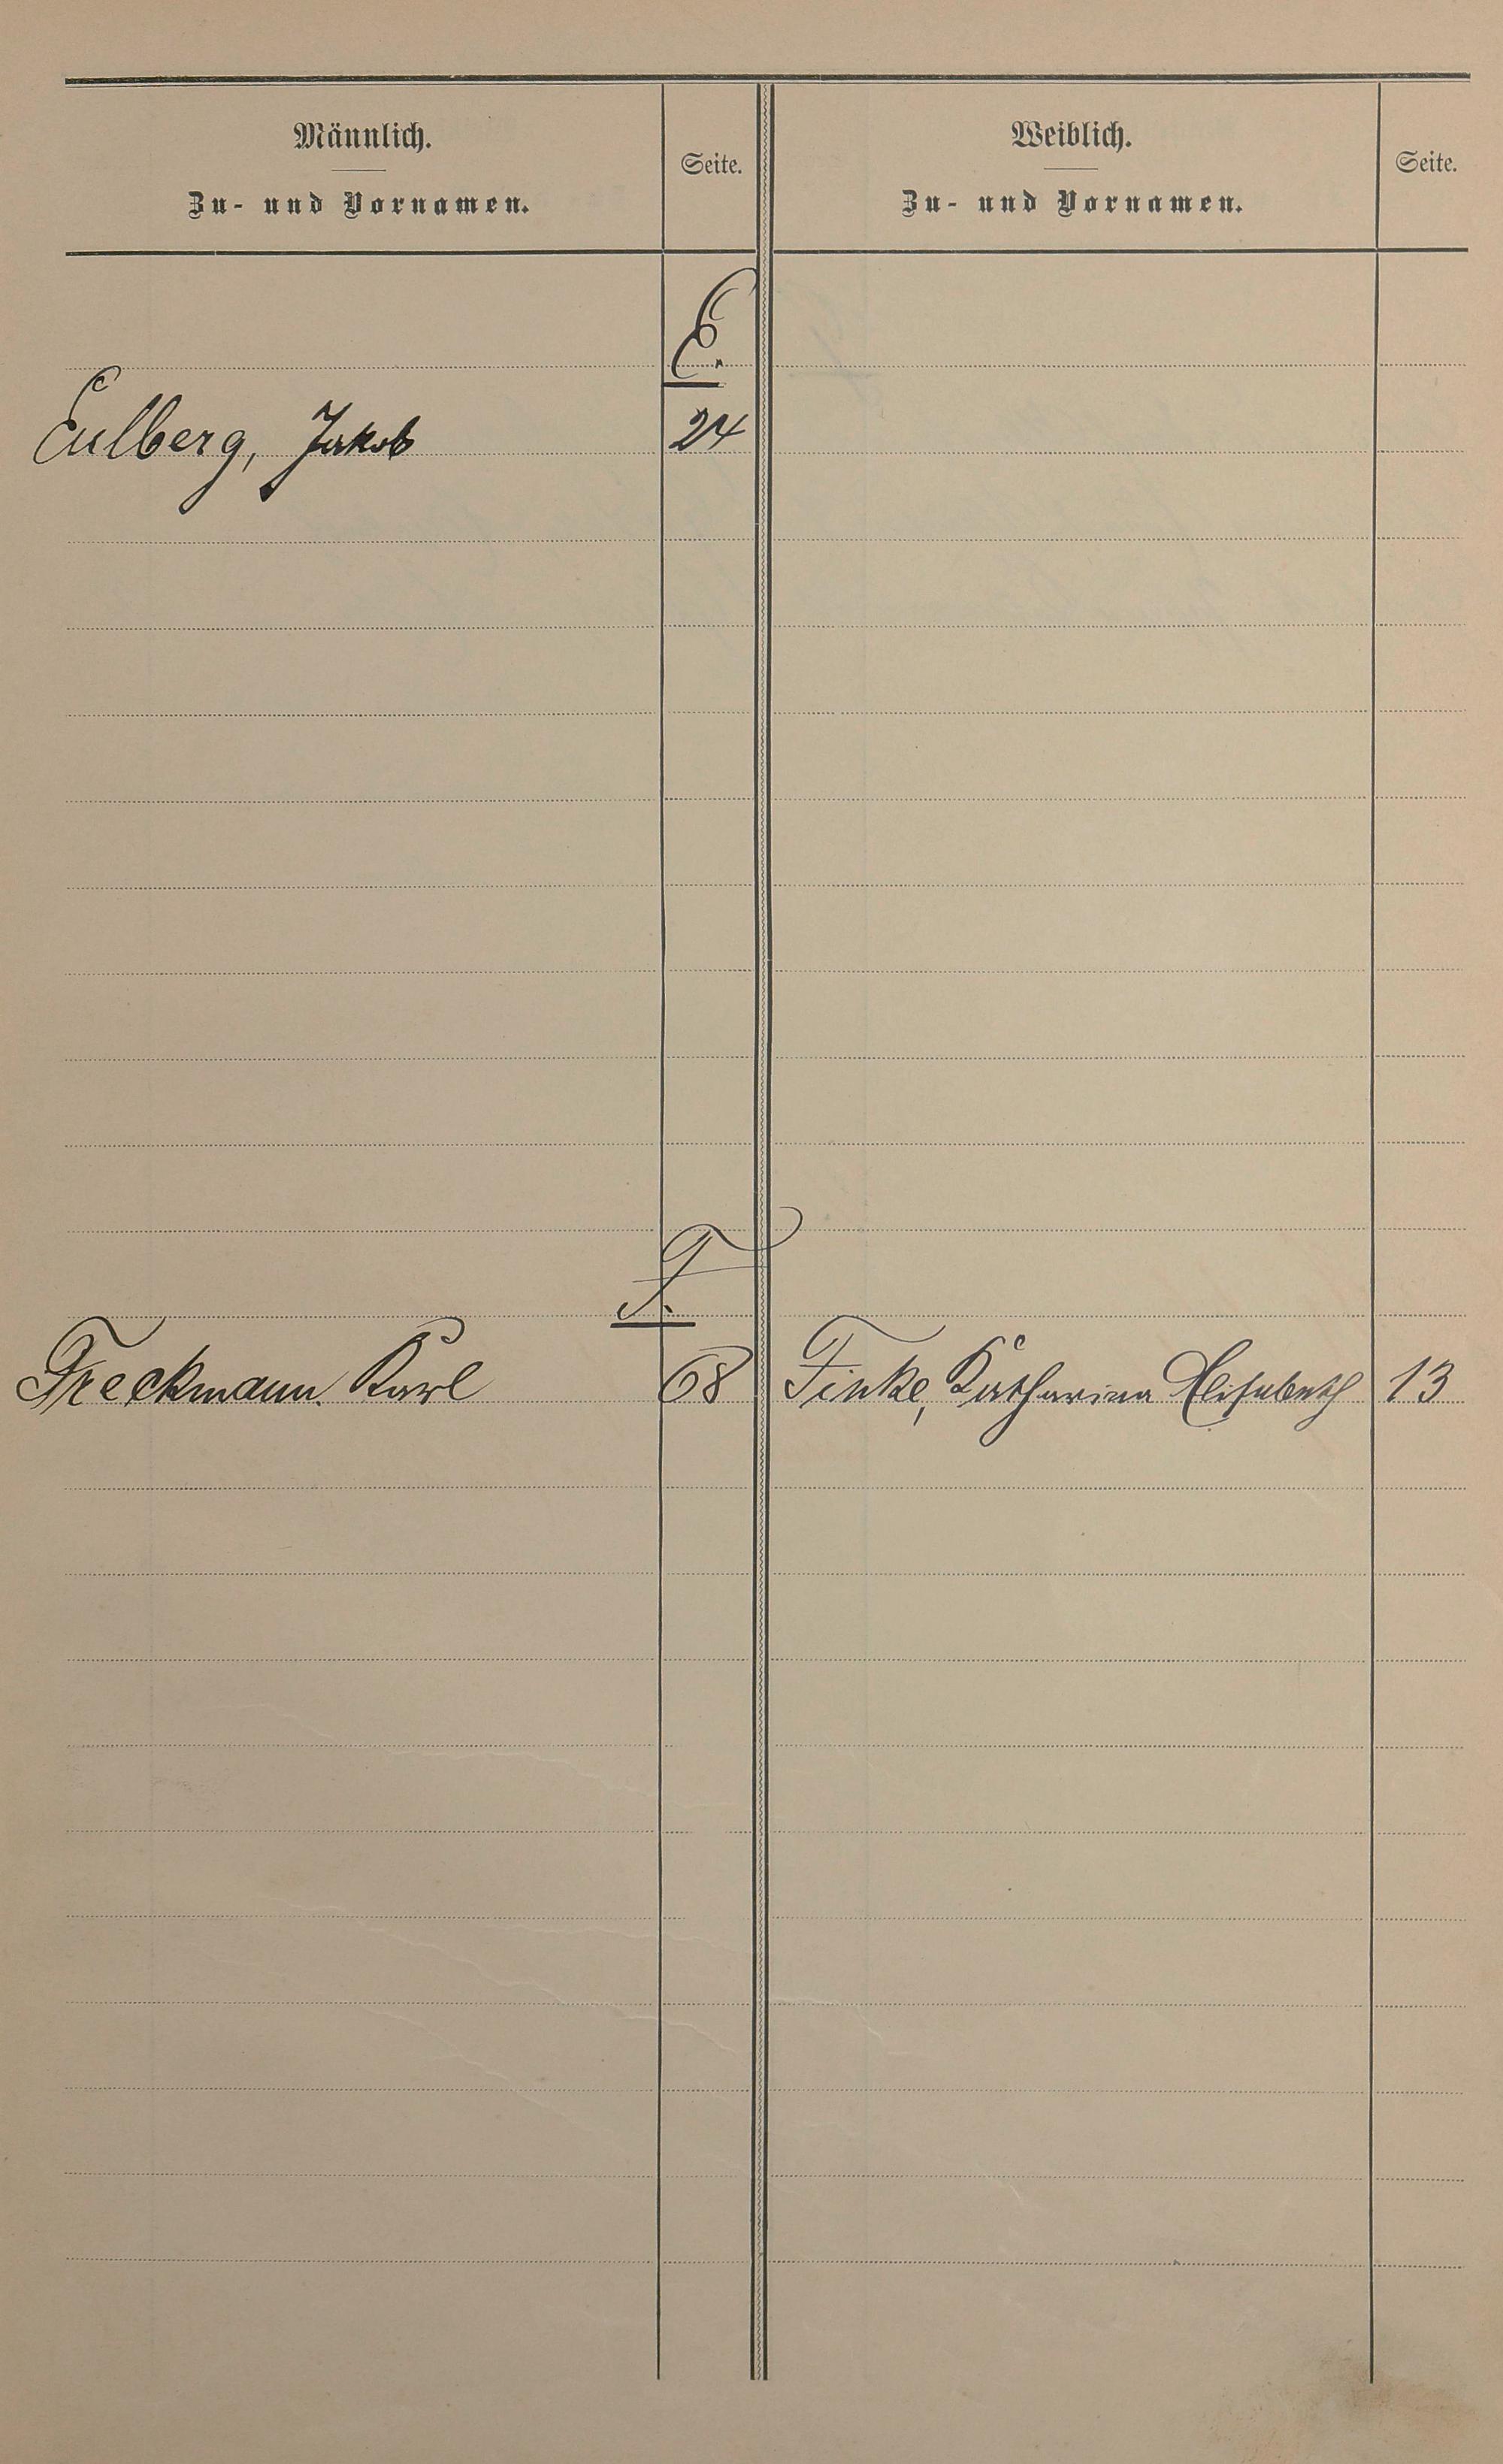 Männlich.
Zu- und Vornamen.
Seite.
Weiblich.
Zu- und Vornamen.
Seite.
E.
Eulberg, Jakob 24
F.
Freckmann. Karl 68 Finke, Katharina Elisabeth 13